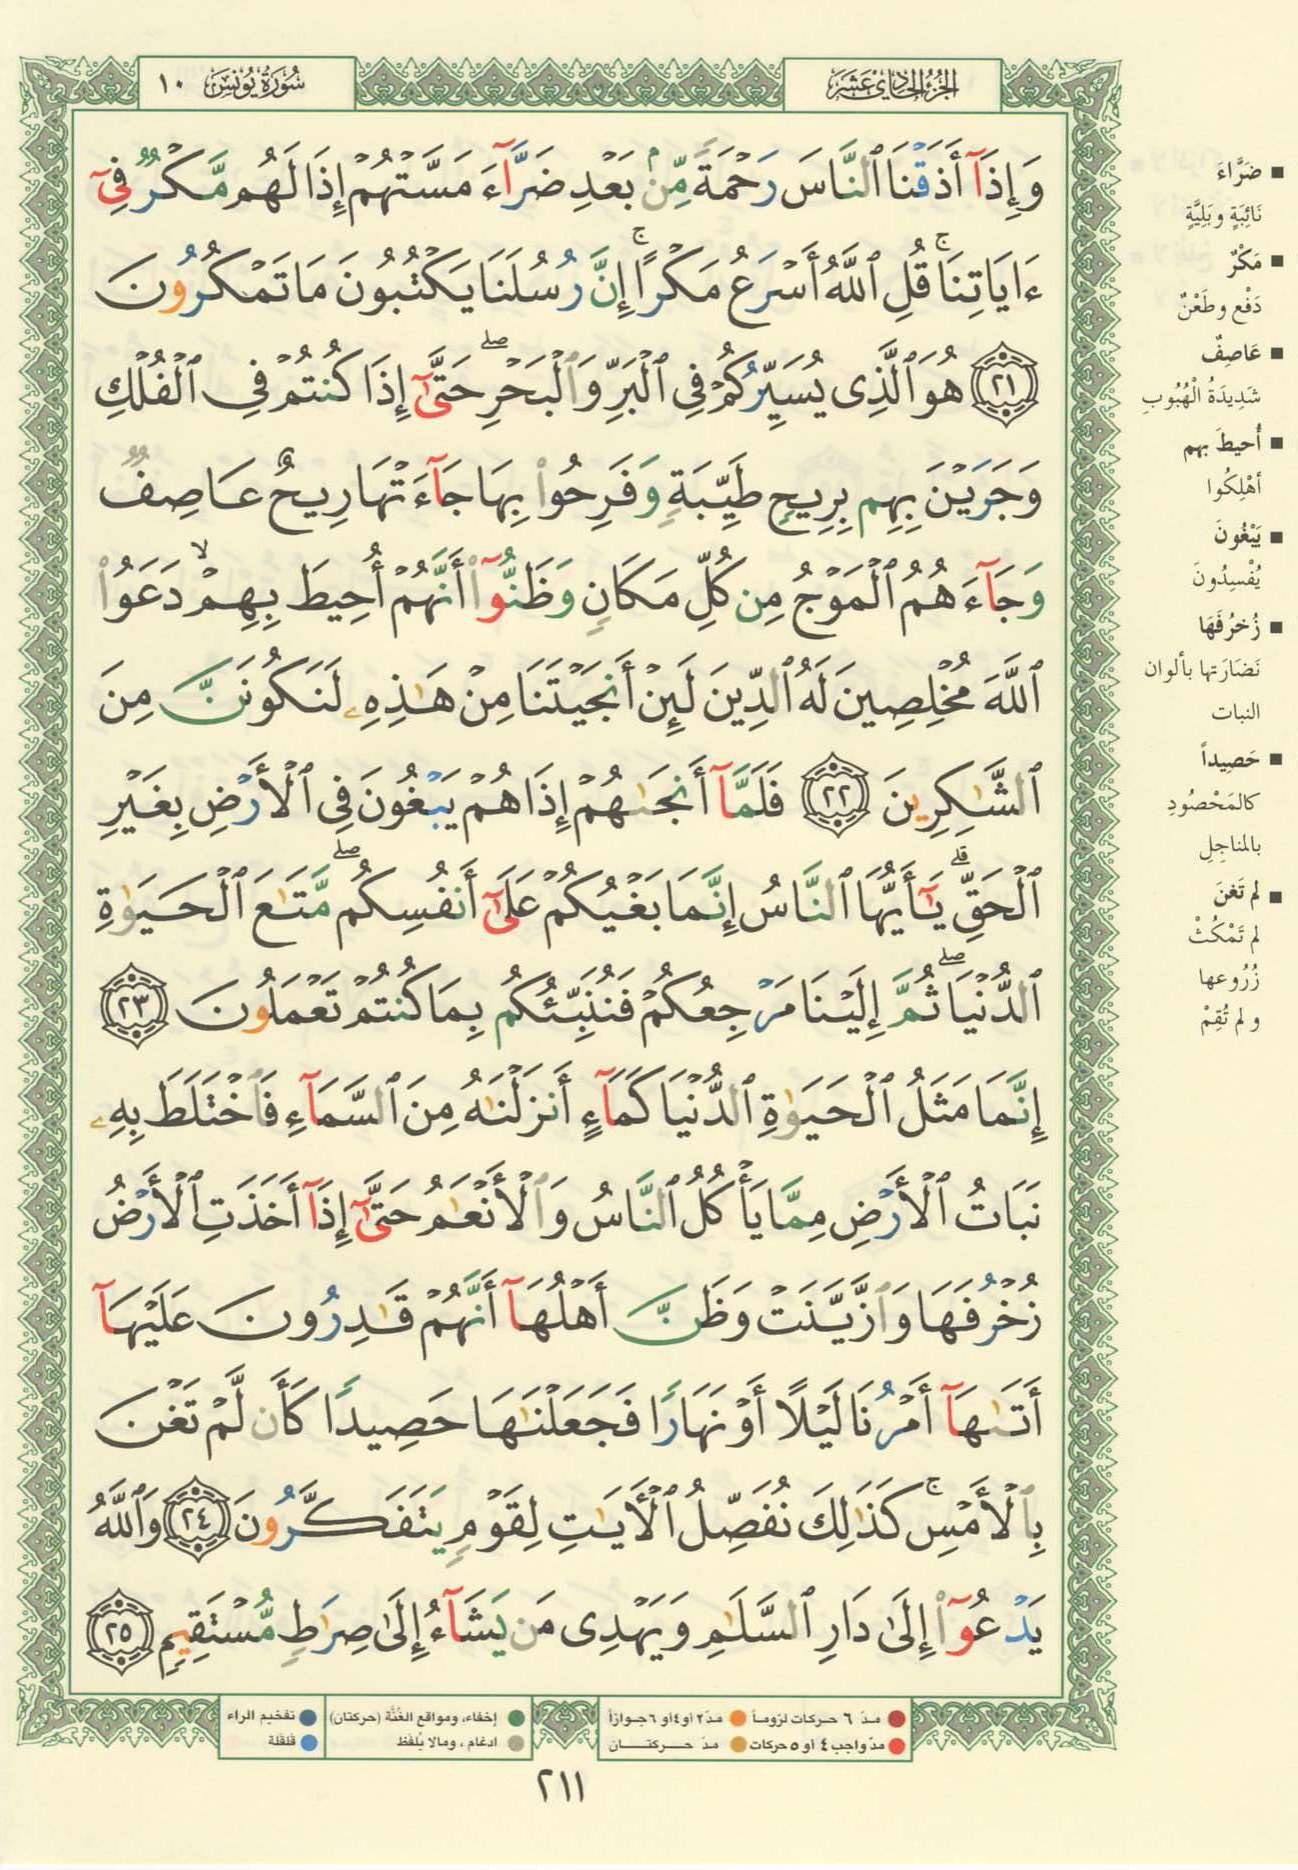 الجزء الحادي عشر
سورة يونس ١٠
وَإِذَآ أَذَقْنَا ٱلنَّاسَ رَحْمَةً مِّنۢ بَعْدِ ضَرَّآءَ مَسَّتْهُمْ إِذَا لَهُم مَّكْرٌ فِىٓ
ءَايَاتِنَا ۚ قُلِ ٱللَّهُ أَسْرَعُ مَكْرًا ۚ إِنَّ رُسُلَنَا يَكْتُبُونَ مَا تَمْكُرُونَ
٢١ هُوَ ٱلَّذِى يُسَيِّرُكُمْ فِى ٱلْبَرِّ وَٱلْبَحْرِ ۖ حَتَّىٰٓ إِذَا كُنتُمْ فِى ٱلْفُلْكِ
وَجَرَيْنَ بِهِم بِرِيحٍ طَيِّبَةٍ وَفَرِحُوا۟ بِهَا جَآءَتْهَا رِيحٌ عَاصِفٌ
وَجَآءَهُمُ ٱلْمَوْجُ مِن كُلِّ مَكَانٍ وَظَنُّوٓا۟ أَنَّهُمْ أُحِيطَ بِهِمْ ۙ دَعَوُا۟
ٱللَّهَ مُخْلِصِينَ لَهُ ٱلدِّينَ لَئِنْ أَنجَيْتَنَا مِنْ هَـٰذِهِۦ لَنَكُونَنَّ مِنَ
ٱلشَّـٰكِرِينَ ٢٢ فَلَمَّآ أَنجَىٰهُمْ إِذَا هُمْ يَبْغُونَ فِى ٱلْأَرْضِ بِغَيْرِ
ٱلْحَقِّ ۗ يَـٰٓأَيُّهَا ٱلنَّاسُ إِنَّمَا بَغْيُكُمْ عَلَىٰٓ أَنفُسِكُم ۖ مَّتَـٰعَ ٱلْحَيَوٰةِ
ٱلدُّنْيَا ۖ ثُمَّ إِلَيْنَا مَرْجِعُكُمْ فَنُنَبِّئُكُم بِمَا كُنتُمْ تَعْمَلُونَ ٢٣
إِنَّمَا مَثَلُ ٱلْحَيَوٰةِ ٱلدُّنْيَا كَمَآءٍ أَنزَلْنَـٰهُ مِنَ ٱلسَّمَآءِ فَٱخْتَلَطَ بِهِۦ
نَبَاتُ ٱلْأَرْضِ مِمَّا يَأْكُلُ ٱلنَّاسُ وَٱلْأَنْعَـٰمُ حَتَّىٰٓ إِذَآ أَخَذَتِ ٱلْأَرْضُ
زُخْرُفَهَا وَٱزَّيَّنَتْ وَظَنَّ أَهْلُهَآ أَنَّهُمْ قَـٰدِرُونَ عَلَيْهَآ
أَتَىٰهَآ أَمْرُنَا لَيْلًا أَوْ نَهَارًا فَجَعَلْنَـٰهَا حَصِيدًا كَأَن لَّمْ تَغْنَ
بِٱلْأَمْسِ ۚ كَذَٰلِكَ نُفَصِّلُ ٱلْأَيَـٰتِ لِقَوْمٍ يَتَفَكَّرُونَ ٢٤ وَٱللَّهُ
يَدْعُوٓا۟ إِلَىٰ دَارِ ٱلسَّلَـٰمِ وَيَهْدِى مَن يَشَآءُ إِلَىٰ صِرَٰطٍ مُّسْتَقِيمٍ ٢٥
ضَرَّاءَ
نَائِبَةٍ وبَلِيَّةٍ
مَكْرٌ
دَفْع وطَعْنٌ
عَاصِفٌ
شَدِيدَةُ الْهُبُوبِ
أُحيطَ بهم
أُهْلِكُوا
يَبْغُونَ
يُفْسِدُونَ
زُخرُفَهَا
نَضَارَتها بألوان
النبات
حَصِيداً
كالمَحْصُودِ
بالمناجِلِ
لم تَغنَ
لم تَمْكُثْ
زُرُوعها
و لم تُقِمْ
مدّ ٦ حركات لزوماً مدّ ٢ أو ٤ أو ٦ جوازاً
مدّ واجب ٤ أو ٥ حركات مدّ حركتان
إخفاء، ومواقع الغُنَّة (حركتان) تفخيم الراء
ادغام، ومالا يُلفَظ قلقلة
٢١١